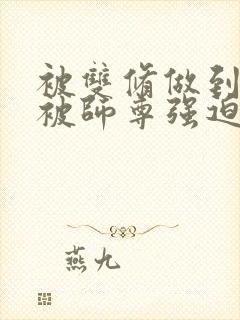 被雙脩做到
被師尊强迫
燕九